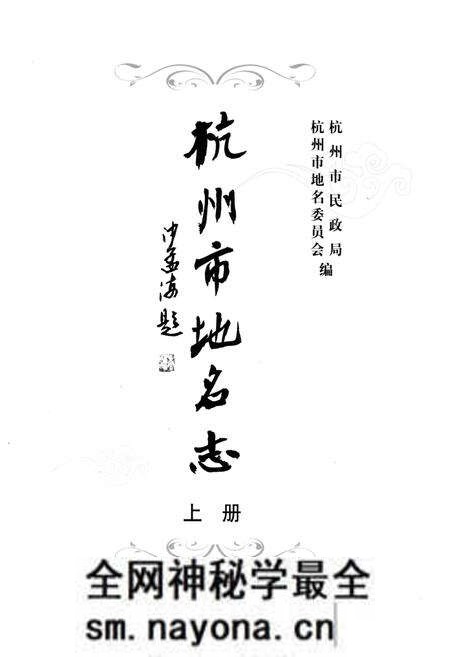 杭州市民政局
杭州市地名委员会 编
杭州市地名志
沙孟海题
上册
全网神秘学最全
sm.nayona.cn